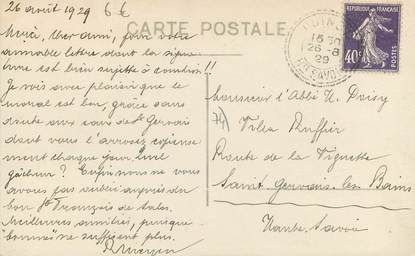 26 août 1929 6 €
CARTE POSTALE
Merci, cher ami, pour votre
aimable lettre dont la signa-
ture est bien sujette à caution !!
Je vois avec plaisir que le
moral est bon, grâce sans
doute aux eaux de St Gervais
dont vous l'arrosez copieuse-
ment chaque jour
Enfin nous ne vous
avons pas oublié auprès du
bon St François de Sales.
Meilleures amitiés, puisque
"bonnes" ne suffisent plus.
15
26-8
29
REPUBLIQUE FRANÇAISE
40c
Monsieur l'Abbé
74 Villa
Route de la Vignette
Saint Gervais les Bains
Haute-Savoie